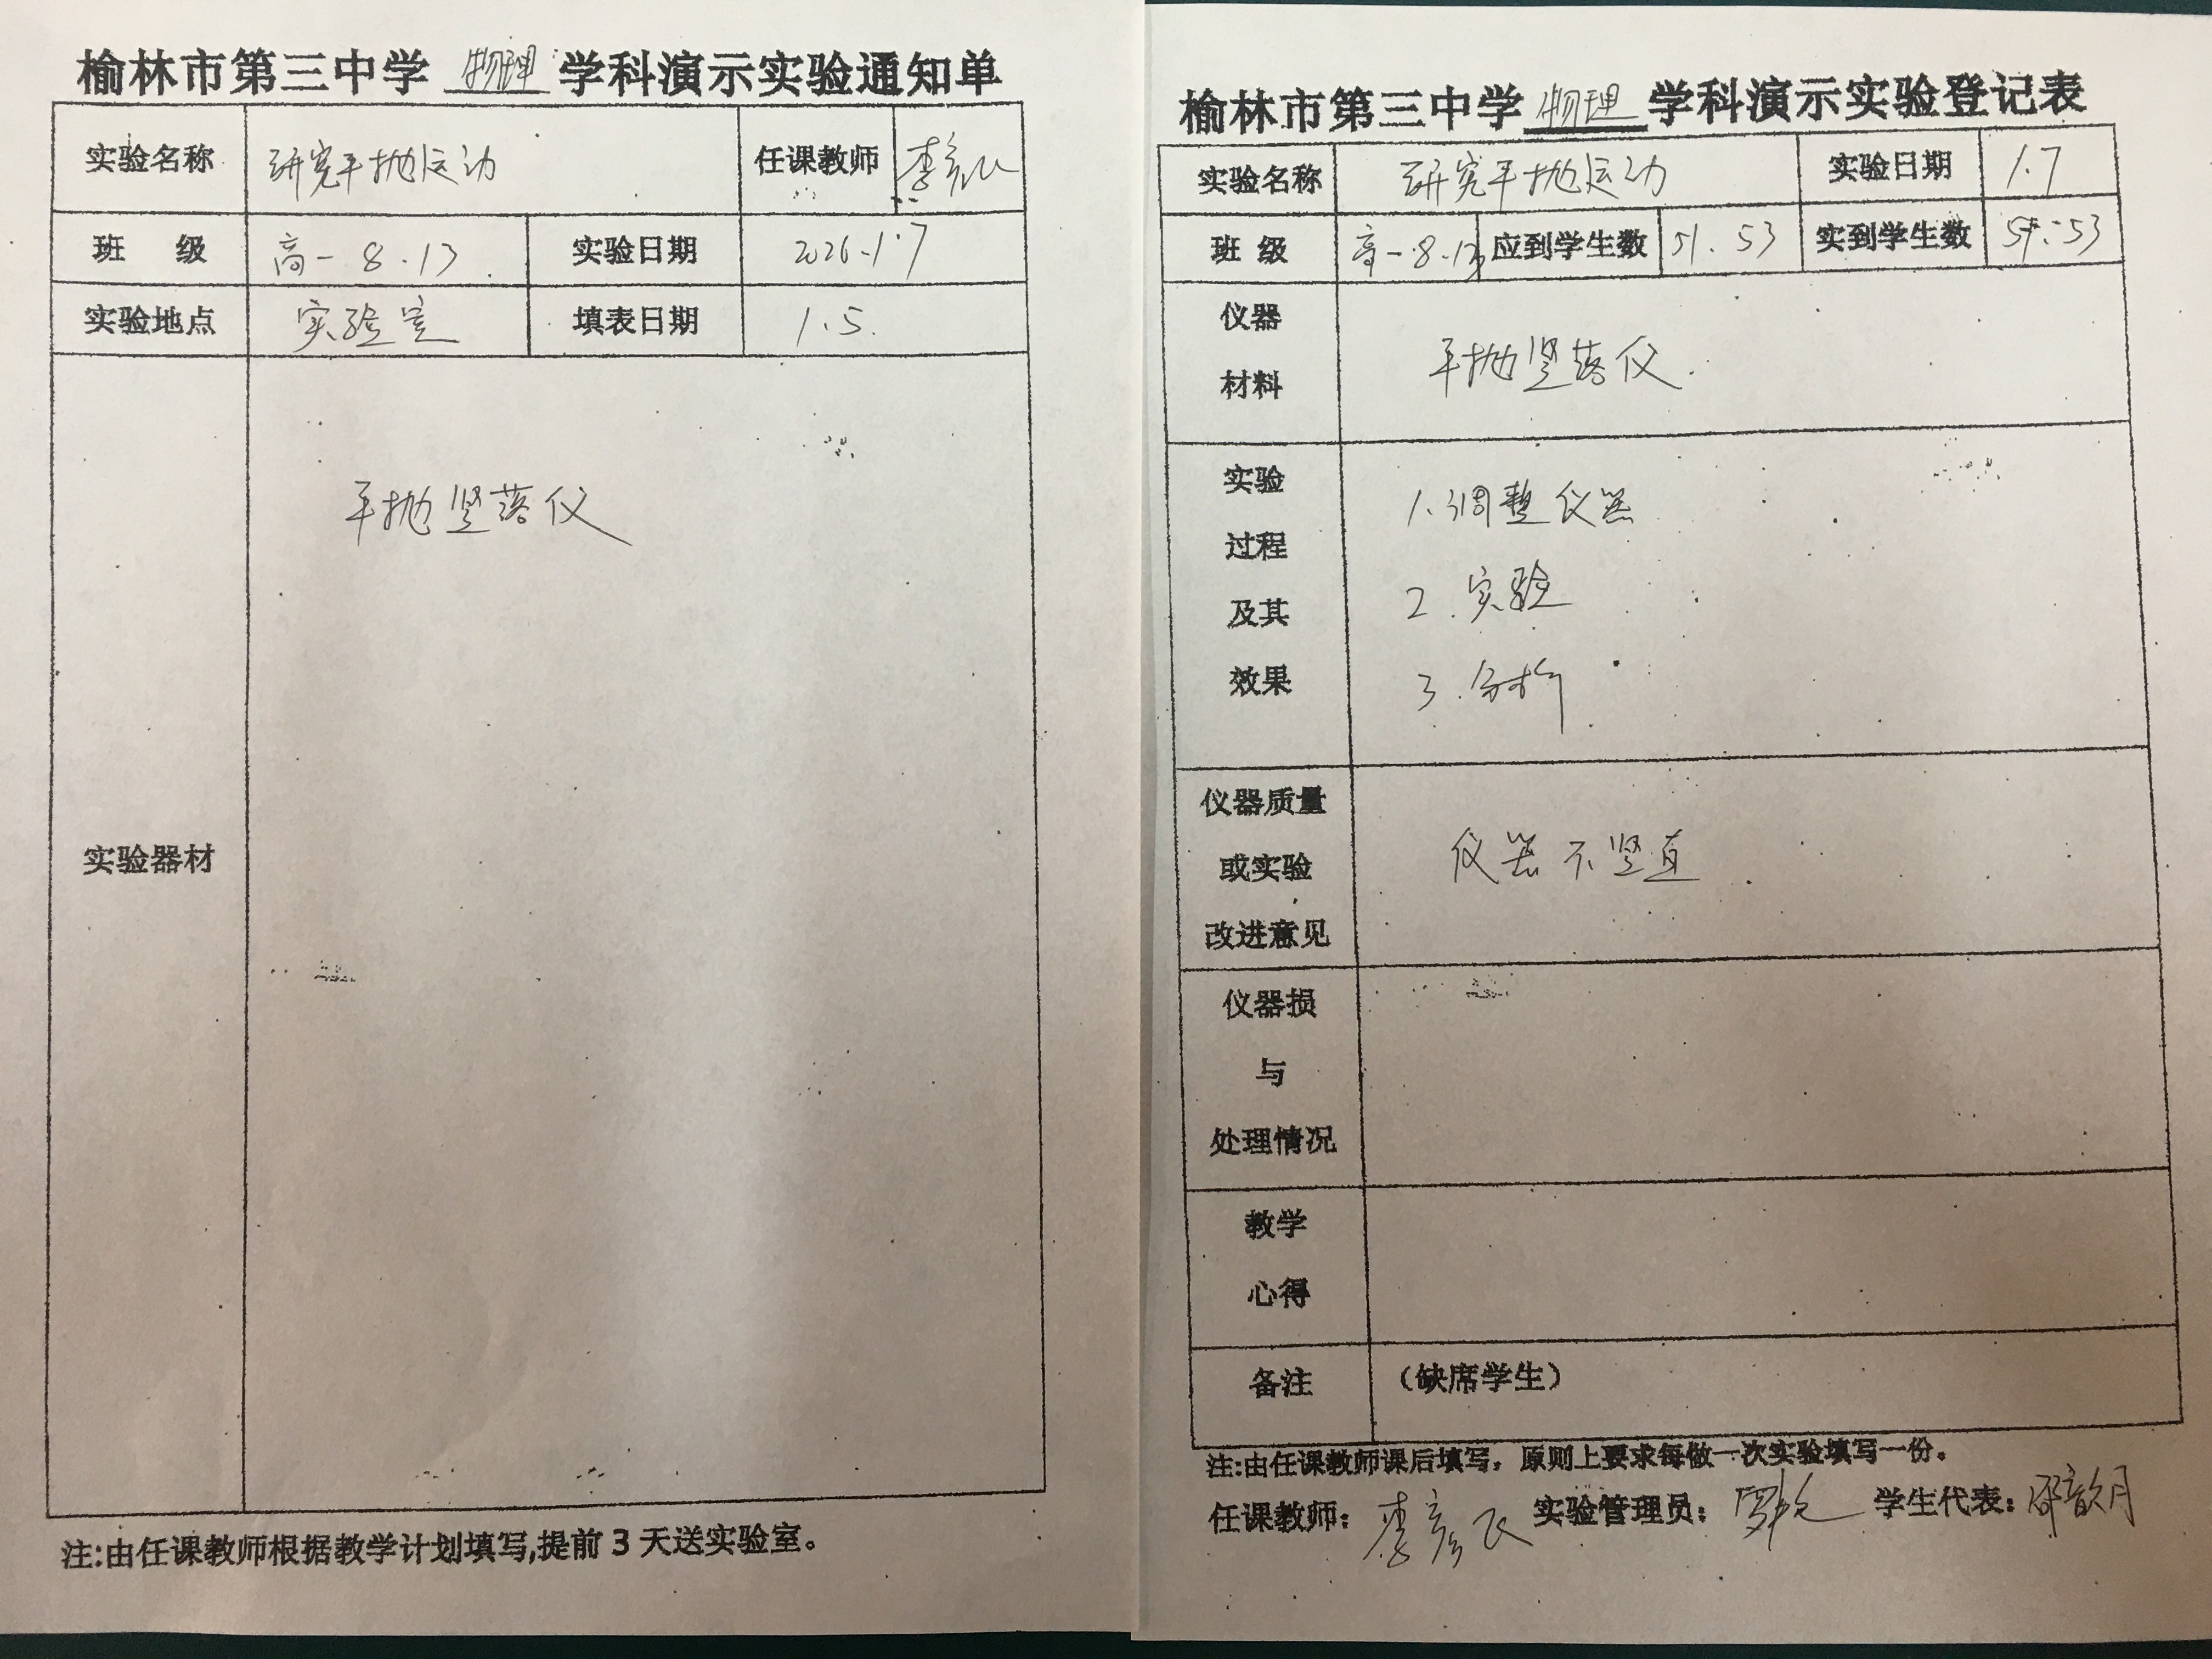 榆林市第三中学 物理 学科演示实验通知单
实验名称 研究平抛运动 任课教师 李彦
班 级 高一 8.13 实验日期 2026.1.7
实验地点 实验室 填表日期 1.5.
实验器材 平抛竖落仪
注:由任课教师根据教学计划填写,提前3天送实验室。
榆林市第三中学 物理 学科演示实验登记表
实验名称 研究平抛运动 实验日期 1.7
班 级 高一.8.13 应到学生数 51.53 实到学生数 53
仪器
材料
平抛竖落仪.
实验
过程
及其
效果
1.调整仪器
2.实验
3.分析
仪器质量
或实验
改进意见
仪器不竖直
仪器损
与
处理情况
教学
心得
备注 （缺席学生）
注:由任课教师课后填写，原则上要求每做一次实验填写一份。
任课教师：李彦 实验管理员： 学生代表：